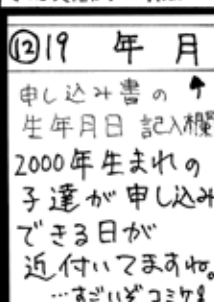 ⑫19 年 月
申し込み書の ↑
生年月日 記入欄
2000年生まれの
子達が申し込み
できる日が
近付いてますね。
…すごいぞコミケ!